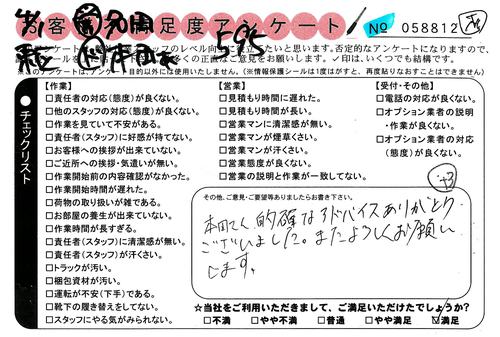 お客様満足度アンケート
595
№ 058812
は、アンケート目的以外には使用いたしません。(※情報保護シールは1度はがすと、再度貼りなおすことはできません)
チェックリスト
【作業】
□責任者の対応(態度)が良くない。
□他のスタッフの対応(態度)が良くない。
□作業を見ていて不安がある。
□責任者(スタッフ)に好感が持てない。
□お客様への挨拶が出来ていない。
□ご近所への挨拶・気遣いが無い。
□作業開始前の内容確認がなかった。
□作業開始時間が遅れた。
□荷物の取り扱いが雑である。
□お部屋の養生が出来ていない。
□作業時間が長すぎる。
□責任者(スタッフ)に清潔感が無い。
□責任者(スタッフ)が汗くさい。
□トラックが汚い。
□梱包資材が汚い。
□運転が不安(下手)である。
□靴下の履き替えをしてない。
□スタッフにやる気がみられない。
【営業】
□見積もり時間に遅れた。
□見積もり時間が長い。
□営業マンに清潔感が無い。
□営業マンが煙草くさい。
□営業マンが汗くさい。
□営業態度が良くない。
□営業の説明と作業が一致してない。
【受付・その他】
□電話の対応が良くない。
□オプション業者の説明
・作業が良くない。
□オプション業者の対応
(態度)が良くない。
+3
その他、ご意見・ご要望等ありましたらお書き下さい。
本田さん 的確なアドバイスありがとう
ございました。またよろしくお願い
します。
☆当社をご利用いただきまして、ご満足いただけたでしょうか?
□不満 □やや不満 □普通 □やや満足 ☑満足